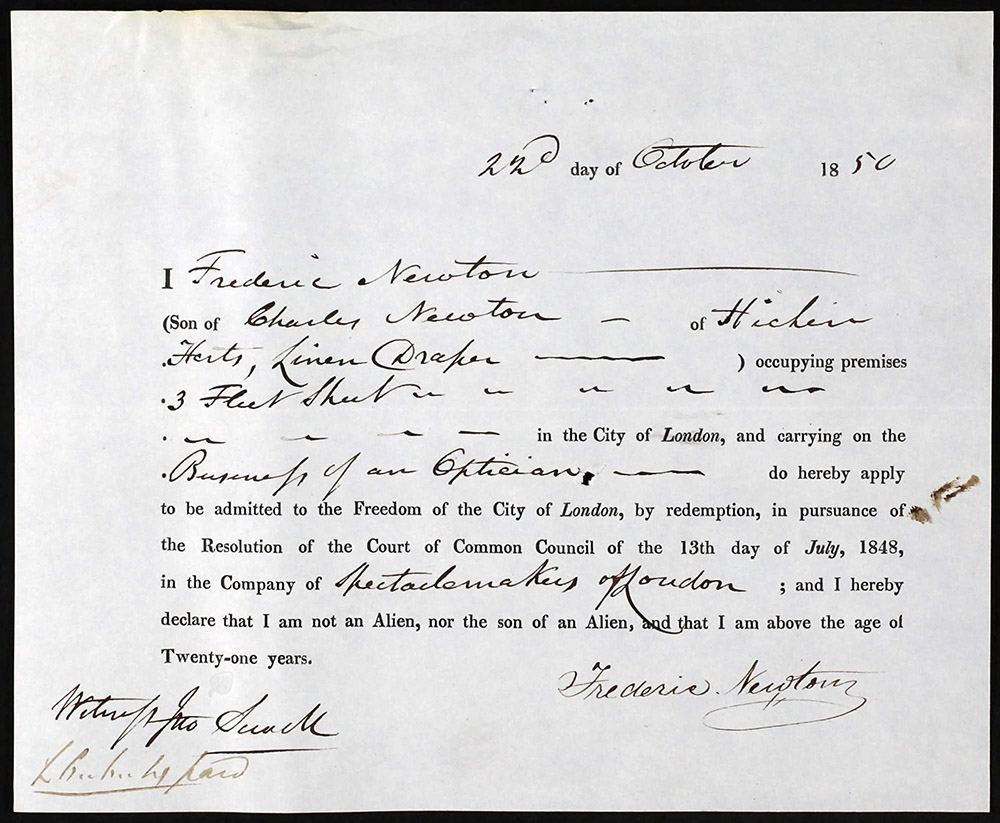 22d day of October 1850
I Frederic Newton
(Son of Charles Newton — of Hichin
Herts, Linen Draper — ) occupying premises
3 Fleet Street
in the City of London, and carrying on the
Business of an Optician, — do hereby apply
to be admitted to the Freedom of the City of London, by redemption, in pursuance of
the Resolution of the Court of Common Council of the 13th day of July, 1848,
in the Company of Spectaclemakers of London ; and I hereby
declare that I am not an Alien, nor the son of an Alien, and that I am above the age of
Twenty-one years.
Frederic Newton
Witness Jno